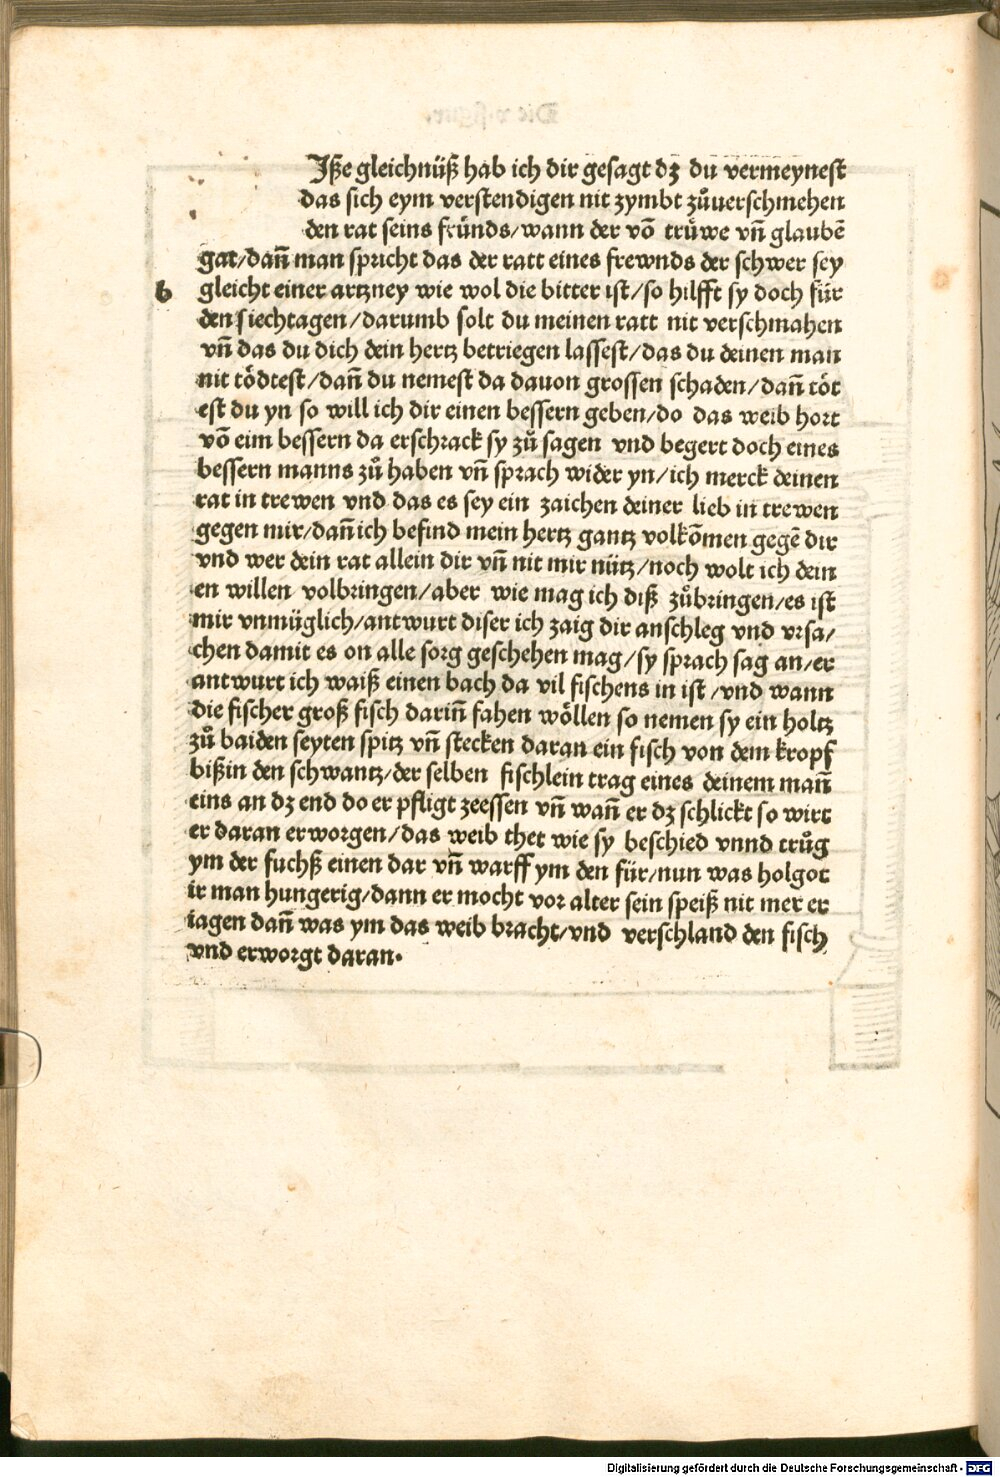 Jße gleichnüß hab ich dir gesagt dz du vermeynest
das sich eym verstendigen nit zymbt zůuerschmehen
den rat seins fründs/wann der võ trüwe vñ glaubẽ
gat/dañ man spricht das der ratt eines frewnds der schwer sey
b gleicht einer artzney wie wol die bitter ist/so hilfft sy doch für
den siechtagen/darumb solt du meinen ratt nit verschmahen
vñ das du dich dein hertz betriegen lassest/das du deinen man
nit tödtest/dañ du nemest da dauon grossen schaden/dañ töt
est du yn so will ich dir einen bessern geben/do das weib hort
võ eim bessern da erschrack sy zů sagen vnd begert doch eines
bessern manns zů haben vñ sprach wider yn/ich merck deinen
rat in trewen vnd das es sey ein zaichen deiner lieb in trewen
gegen mir/dañ ich befind mein hertz gantz volkõmen gegẽ dir
vnd wer dein rat allein dir vñ nit mir nütz/noch wolt ich dein
en willen volbringen/aber wie mag ich diß zůbringen/es ist
mir vnmüglich/antwurt diser ich zaig dir anschleg vnd vrsa/
chen damit es on alle sorg geschehen mag/sy sprach sag an/er
antwurt ich waiß einen bach da vil fischens in ist/vnd wann
die fischer groß fisch dariñ fahen wöllen so nemen sy ein holtz
zů baiden seyten spitz vñ stecken daran ein fisch von dem kropf
bißin den schwantz/der selben fischlein trag eines deinem mañ
eins an dz end do er pfligt zeessen vñ wañ er dz schlickt so wirt
er daran erworgen/das weib thet wie sy beschied vnnd trůg
ym der fuchß einen dar vñ warff ym den für/nun was holgot
ir man hungerig/dann er mocht vor alter sein speiß nit mer er
iagen dañ was ym das weib bracht/vnd verschland den fisch
vnd erworgt daran.
Digitalisierung gefördert durch die Deutsche Forschungsgemeinschaft - DFG